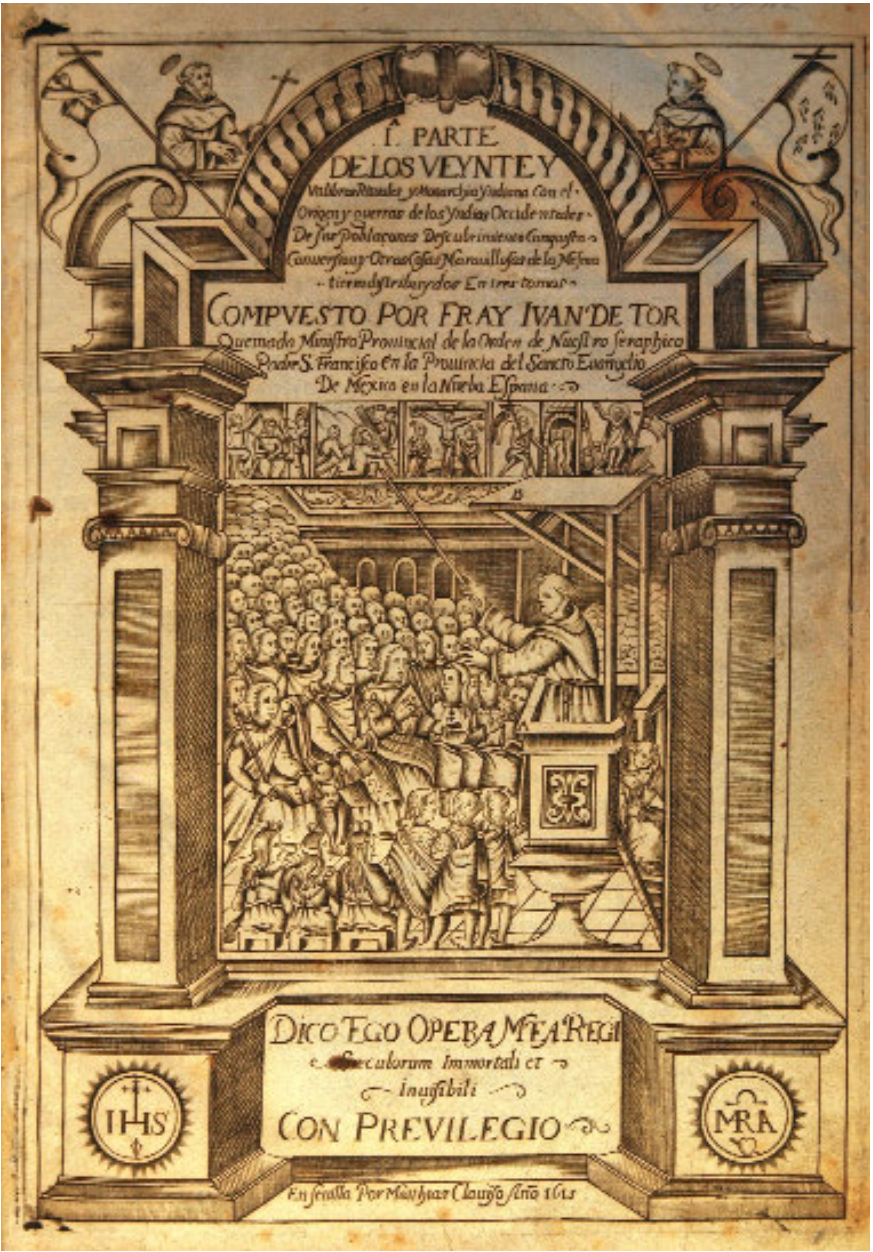 Iª. PARTE
DE LOS VEYNTE Y
Vn libros Rituales y Monarchia Yndiana Con el
Origen y guerras de los Yndios Occidentales
De sus Poblaçones Descubrimiento Conquista
Conuersion y Otras Cosas Marauillosas de la Mesma
tierra distribuydos En tres tomos
COMPVESTO POR FRAY IVAN DE TOR
Quemada Ministro Prouincial de la Orden de Nuestro seraphico
Padre S. Francisco en la Prouincia del Sancto Euangelio
De Mexico en la Nueba Espana
DICO EGO OPERA MEA REGI
Sæculorum Immortali et
Inuisibili
CON PREVILEGIO
IHS
MRA
En seuilla Por Matthias Clauijo Año 1615